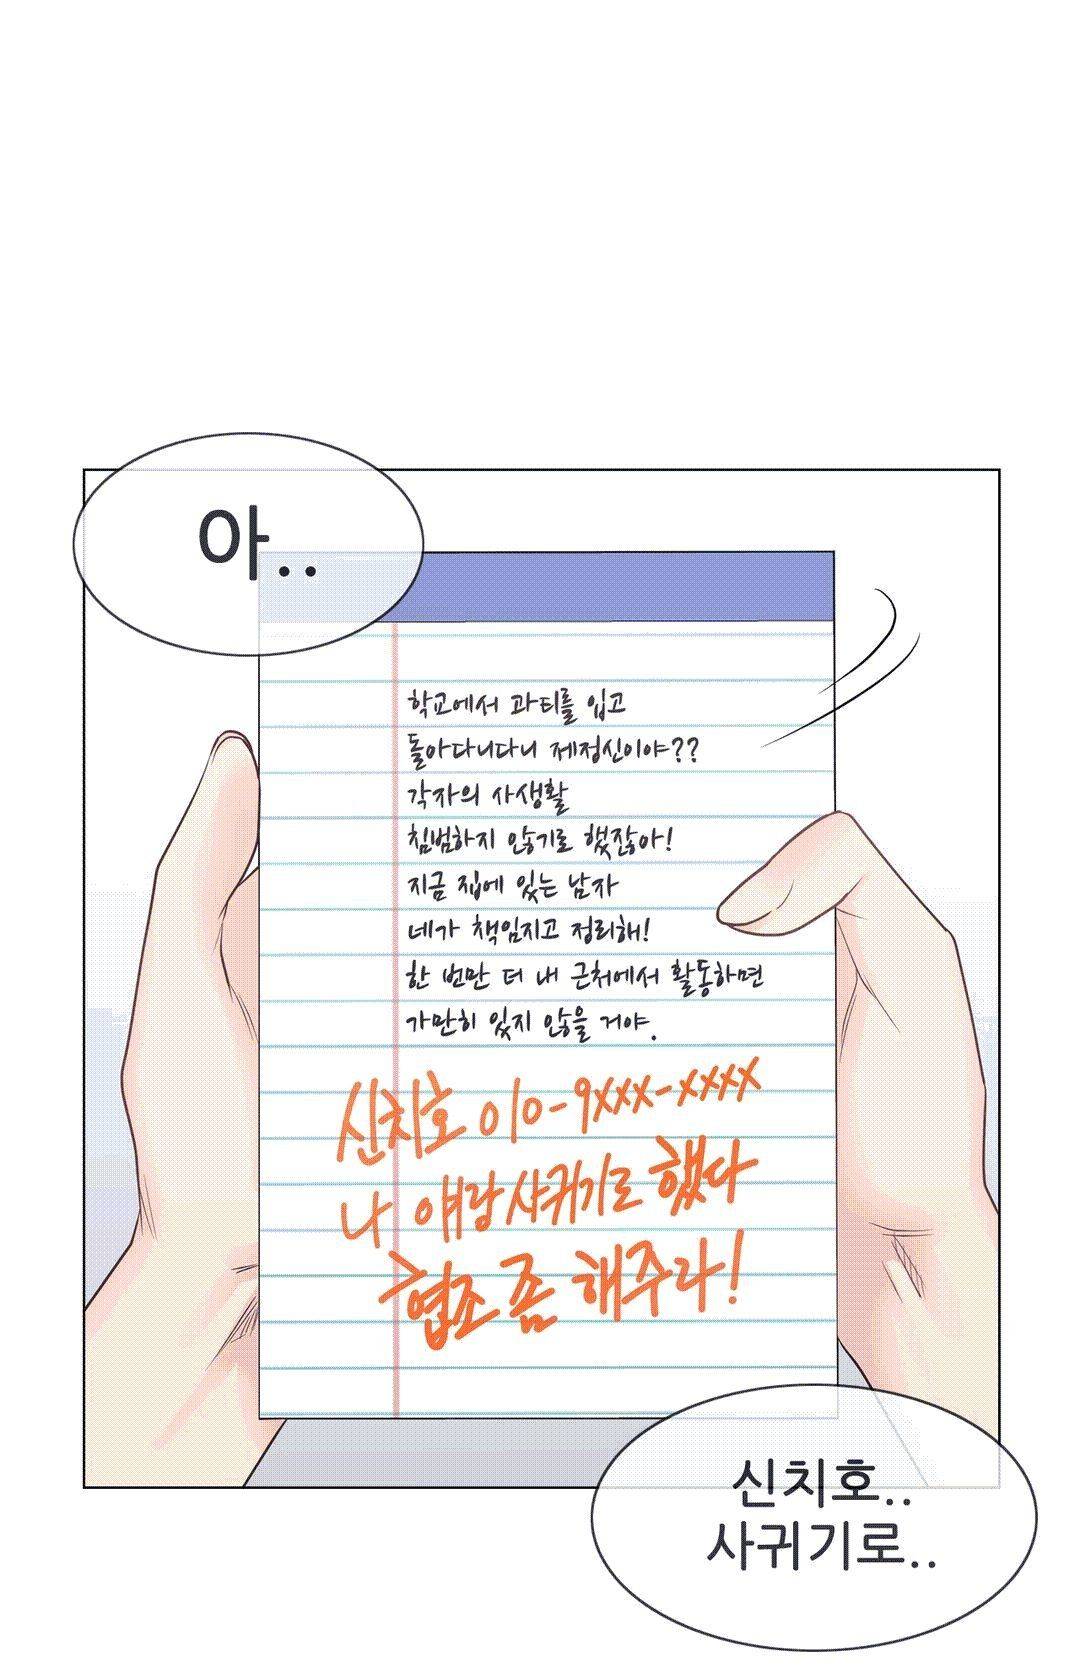 아..
학교에서 과티를 입고
돌아다니다니 제정신이야??
각자의 사생활
침범하지 않기로 했잖아!
지금 집에 있는 남자
네가 책임지고 정리해!
한 번만 더 내 근처에서 활동하면
가만히 있지 않을 거야.
신치호 010-9xxx-xxxx
나 얘랑 사귀기로 했다
협조 좀 해주라!
신치호..
사귀기로..